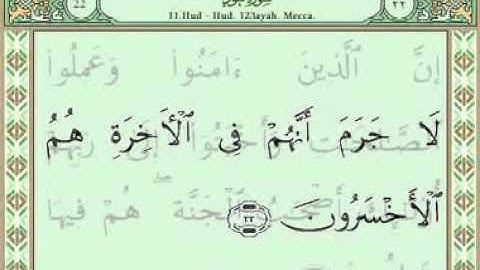 22 سورة هود ٢٢
11.Hud - Hud. 123ayah. Mecca.
إِنَّ ٱلَّذِينَ ءَامَنُوا۟ وَعَمِلُوا۟
لَا جَرَمَ أَنَّهُمْ فِى ٱلْأَخِرَةِ هُمُ
ٱلصَّٰلِحَٰتِ وَأَخْبَتُوٓا۟ إِلَىٰ رَبِّهِمْ
ٱلْأَخْسَرُونَ ٢٢
أَصْحَٰبُ ٱلْجَنَّةِ ۖ هُمْ فِيهَا